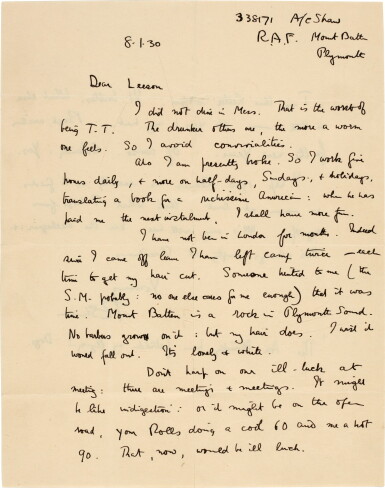 338171 A/c Shaw
8.1.30 R.A.F. Mount Batten
Plymouth
Dear Leeson
I did not dine in Mess. That is the worst of
being T.T. The drunker others are, the more a worm
one feels. So I avoid convivialities.
Also I am presently broke. So I work five
hours daily, & more on half-days, Sundays, & holidays,
translating a book for a richissime American: when he has
paid me the next instalment, I shall have more fun.
I have not been in London for months. Indeed
since I came off leave I have left camp twice — each
time to get my hair cut. Someone hinted to me (the
S.M. probably: no one else cares for me enough) that it was
time. Mount Batten is a rock in Plymouth Sound.
No barbers grow on it: but my hair does. I wish it
would fall out. It's lonely & white.
Don't harp on our ill-luck at
meeting: there are meetings & meetings. It might
be like indigestion: or it might be on the open
road, your Rolls doing a cool 60 and me a hot
90. That, now, would be ill luck.